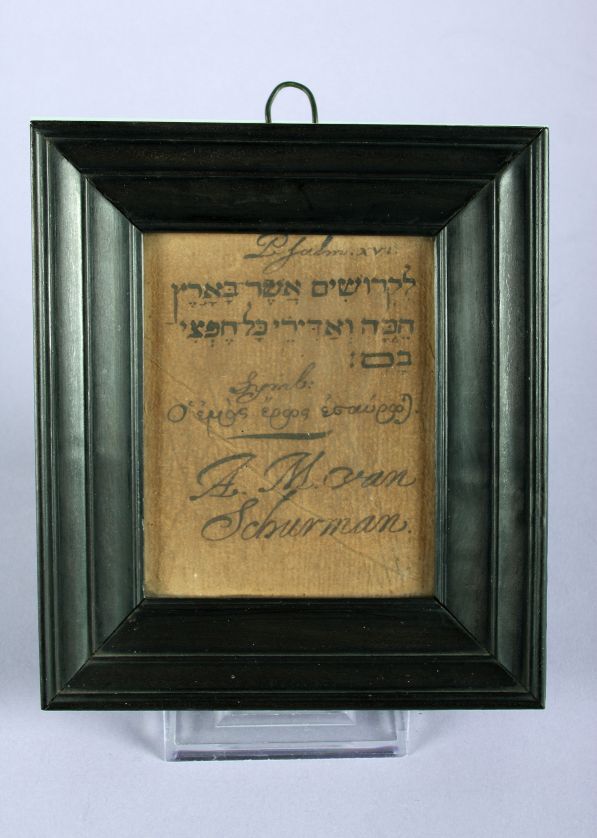 Psalm. XVI.
לִקְדוֹשִׁים אֲשֶׁר בָּאָרֶץ
הֵמָּה וְאַדִּירֵי כָּל חֶפְצִי
בָם:
Symb:
Ὁ ἐμὸς ἔρως ἐσταύρωται.
A. M. van
Schurman.